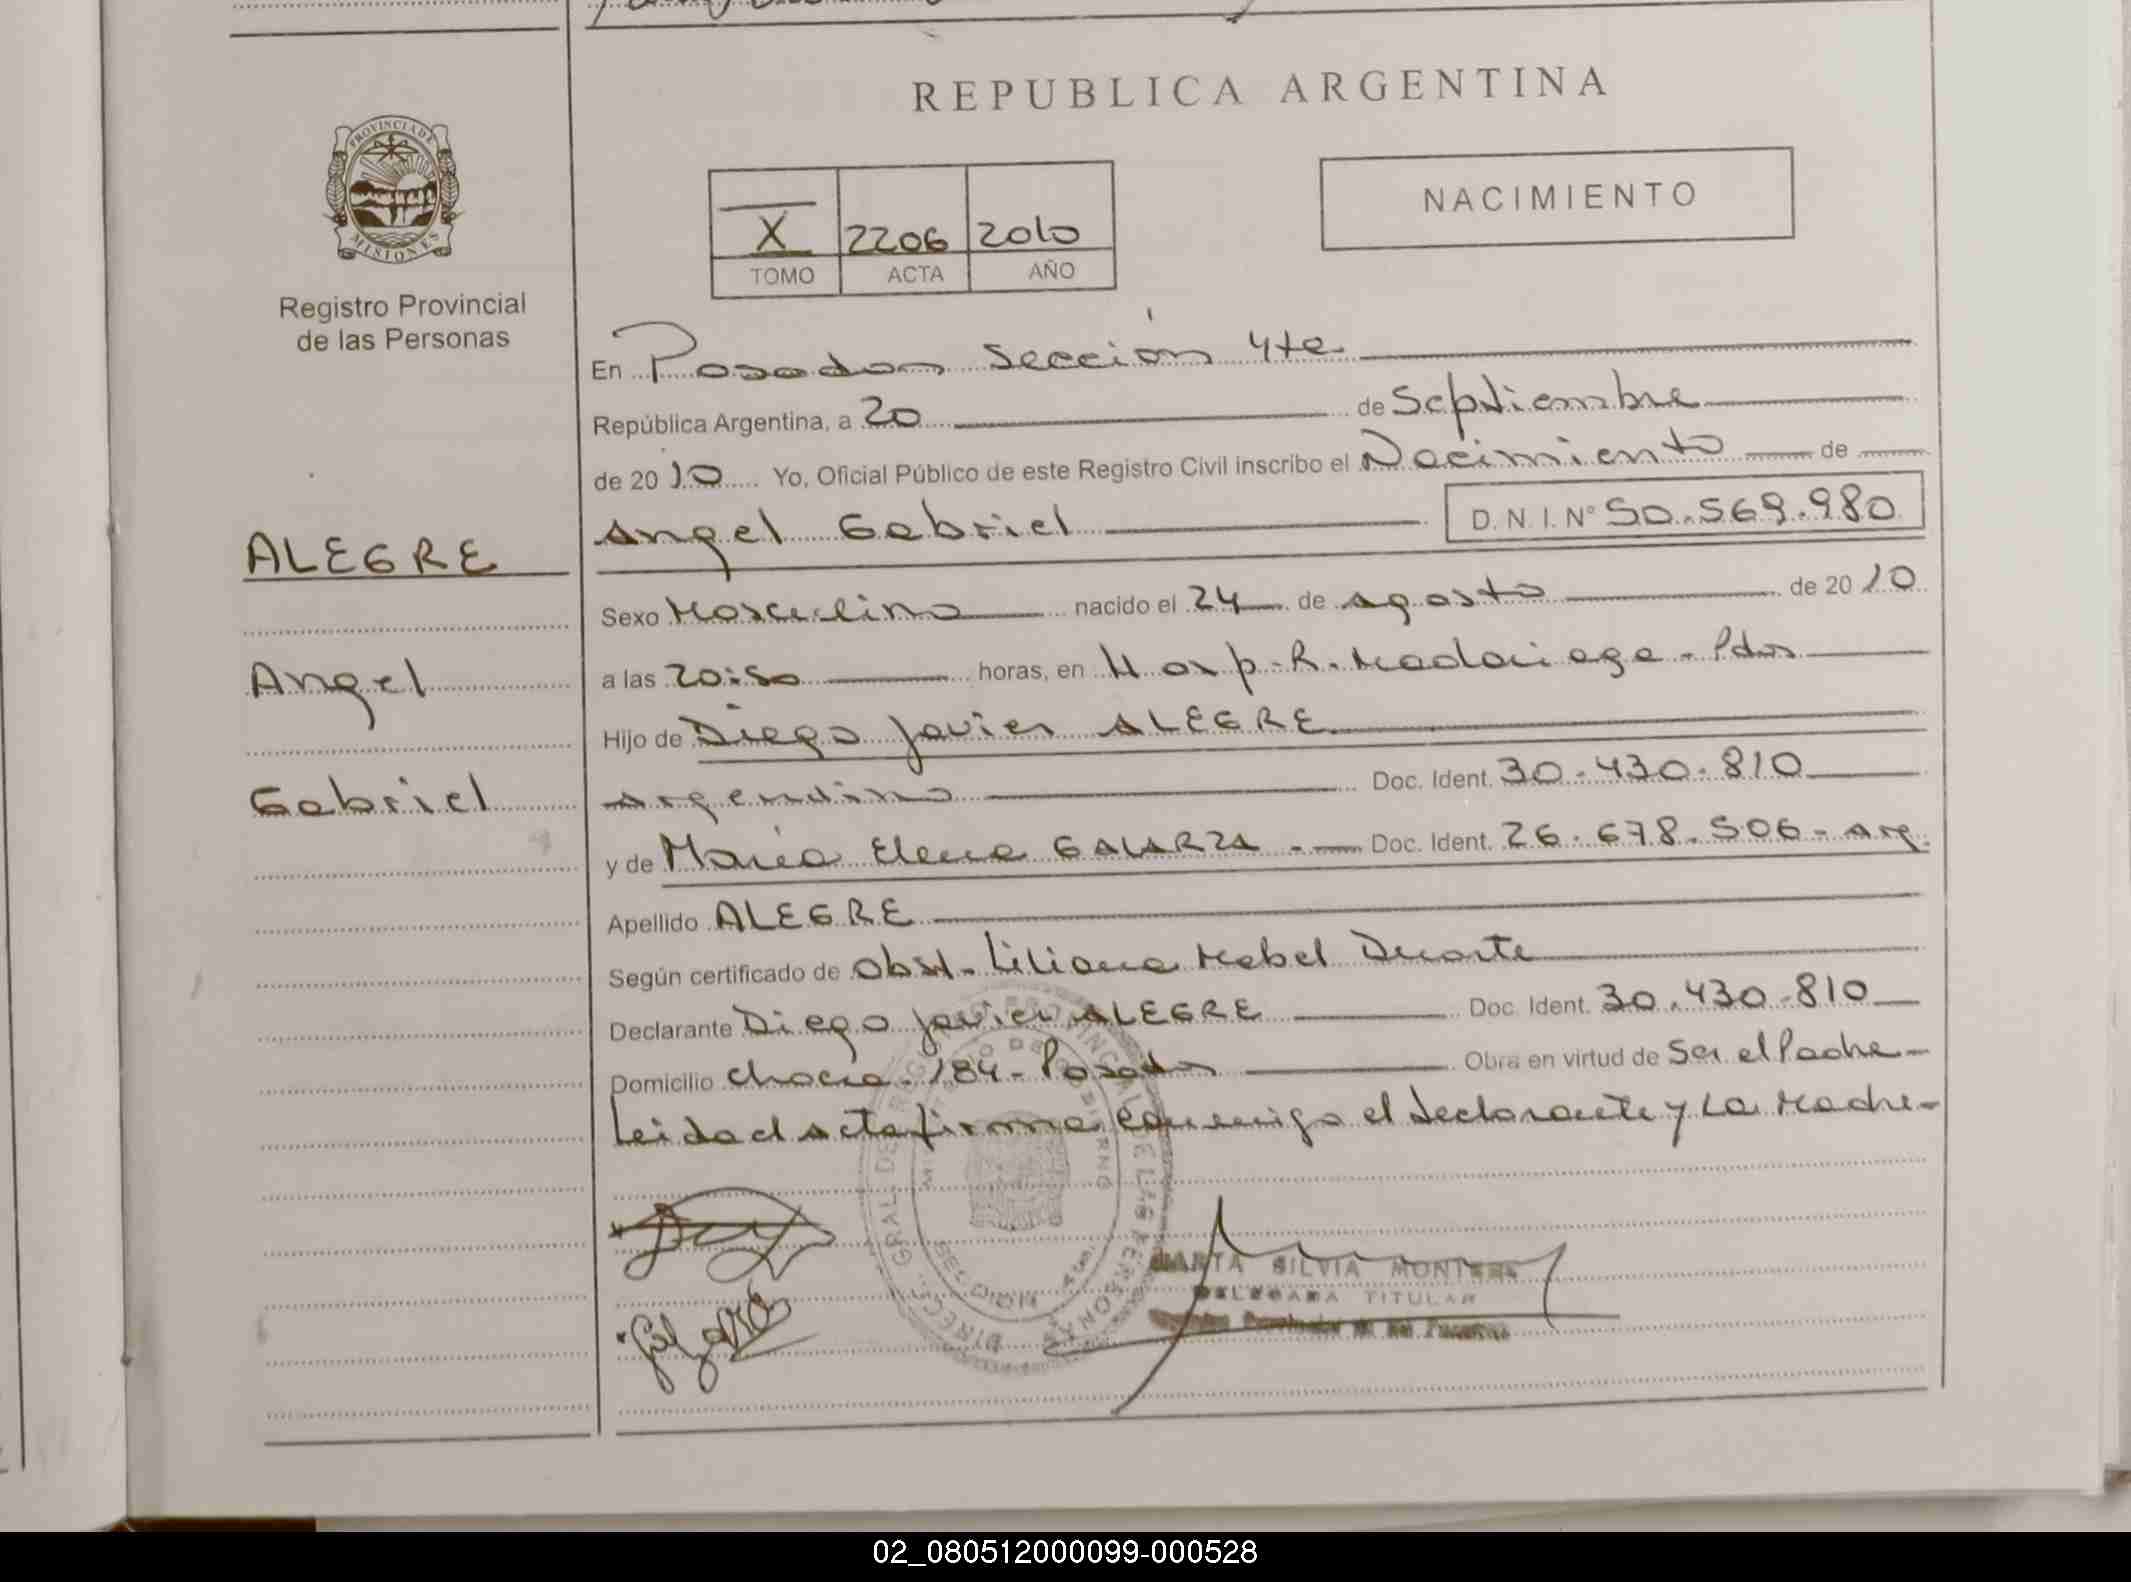 REPUBLICA ARGENTINA
PROVINCIA DE
MISIONES
Registro Provincial
de las Personas
X 2206 2010
TOMO ACTA AÑO
NACIMIENTO
En Posadas Sección 4ta
República Argentina, a 20 de Septiembre
de 2010 Yo, Oficial Público de este Registro Civil inscribo el Nacimiento de
Angel Gabriel D.N.I.N° 50.569.980
ALEGRE
Angel
Gabriel
Sexo Masculino nacido el 24 de agosto de 2010
a las 20:50 horas, en Hosp. R. Madariaga - Pdas
Hijo de Diego Javier ALEGRE
argentino Doc. Ident. 30.430.810
y de María Elena GALARZA Doc. Ident. 26.678.506 - arg.
Apellido ALEGRE
Según certificado de Obst. Liliana Mabel Duarte
Declarante Diego Javier ALEGRE Doc. Ident. 30.430.810
Domicilio 184 - Posadas Obra en virtud de Ser el Padre -
Leida el acta firma conmigo el declarante y La Madre -
MARTA SILVIA
DELEGADA TITULAR
02_080512000099-000528